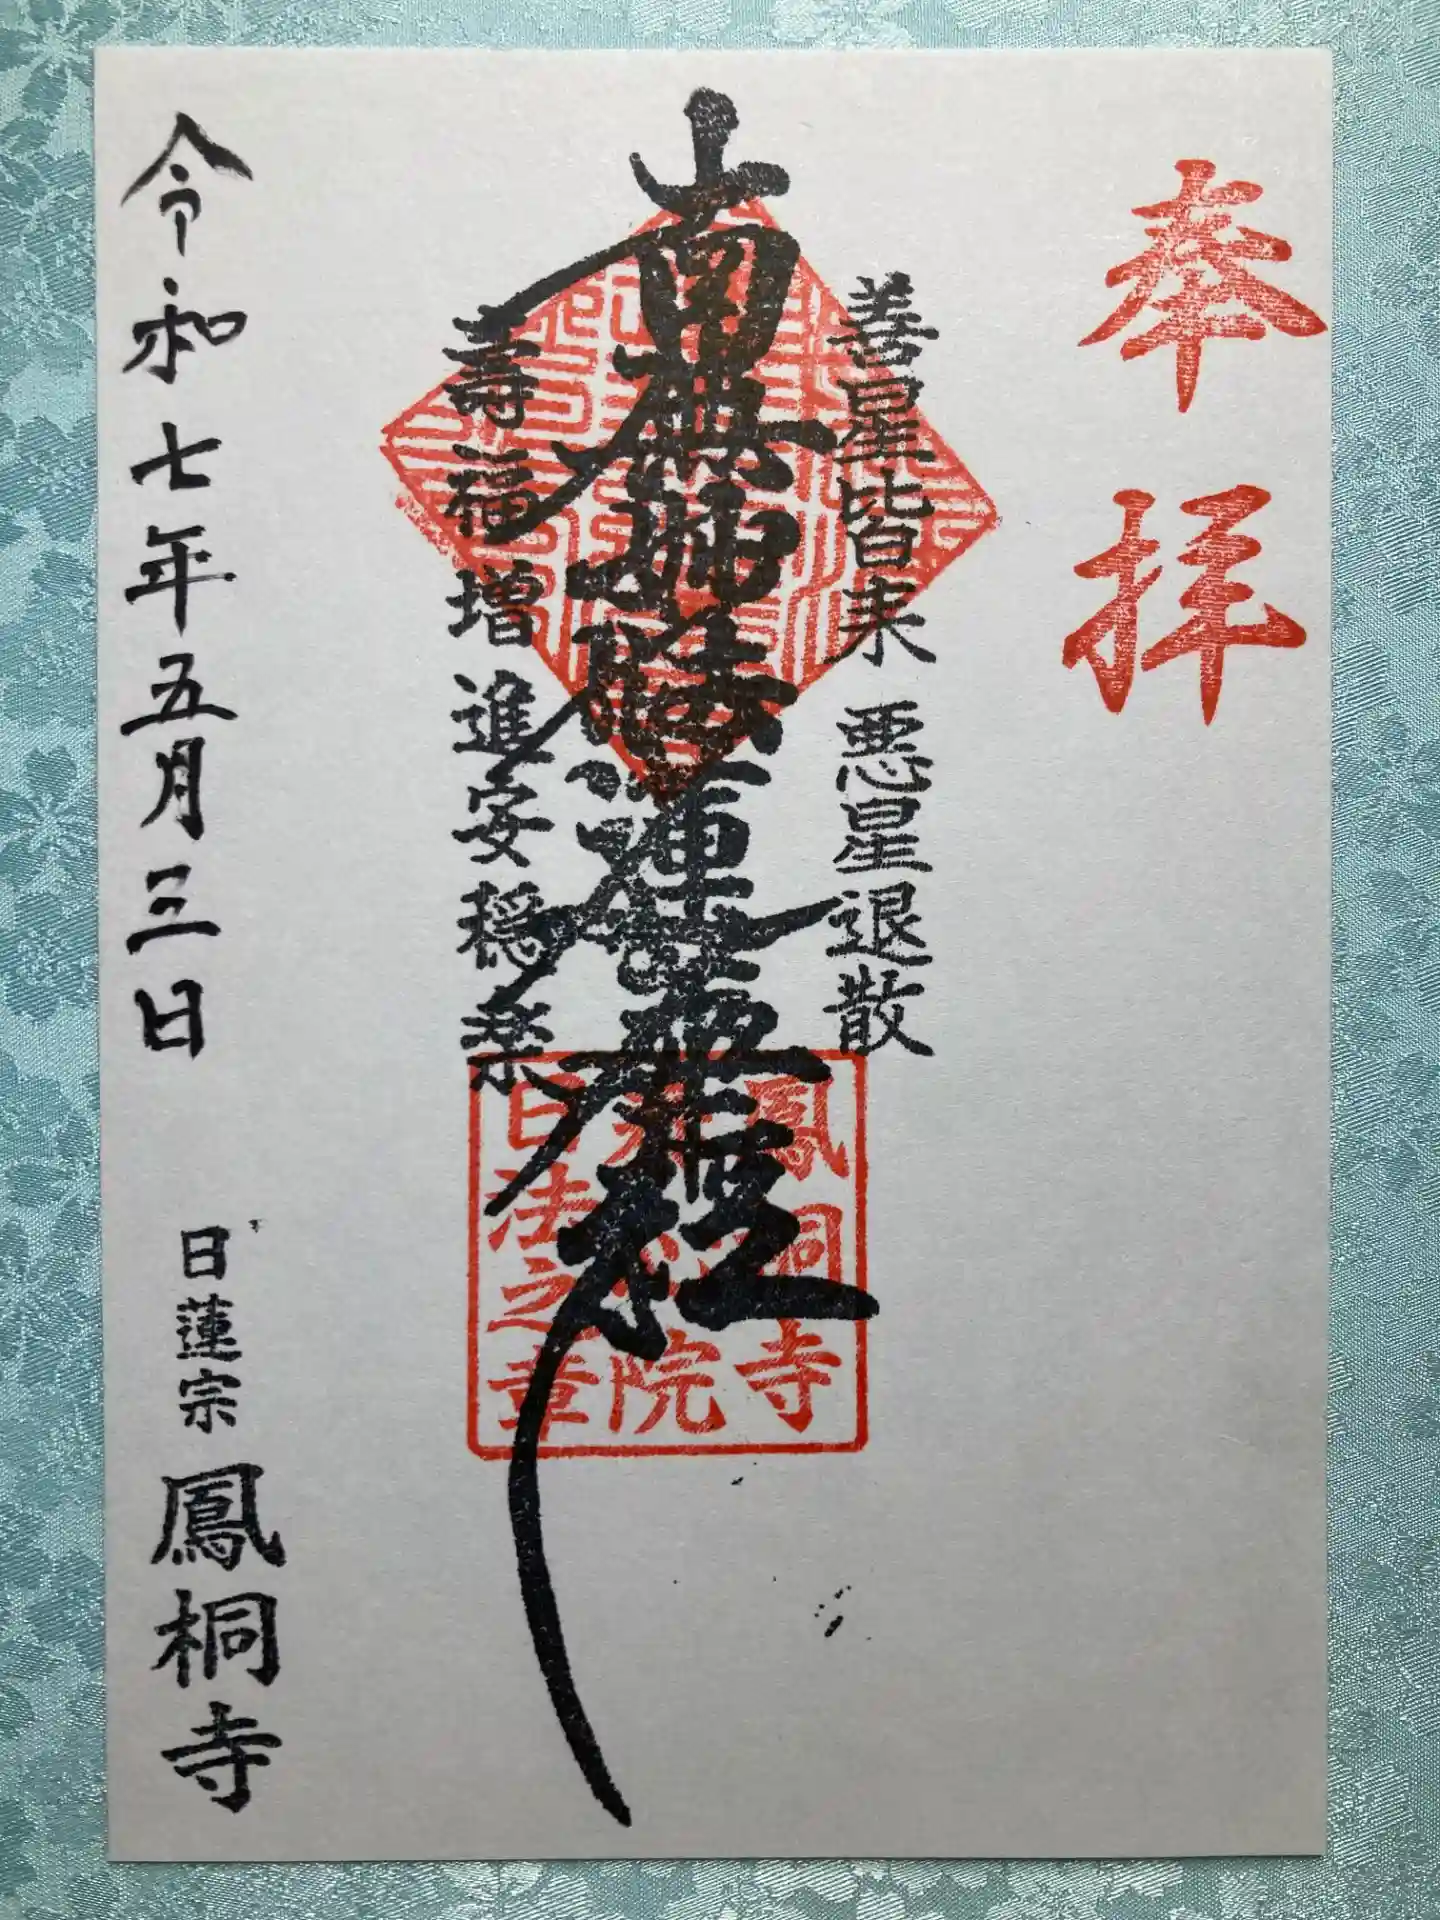 奉拝
善星皆来 悪星退散
南無妙法蓮華経
寿福増進安穏楽
鳳桐寺
院
日法之章
令和七年五月三日
日蓮宗 鳳桐寺